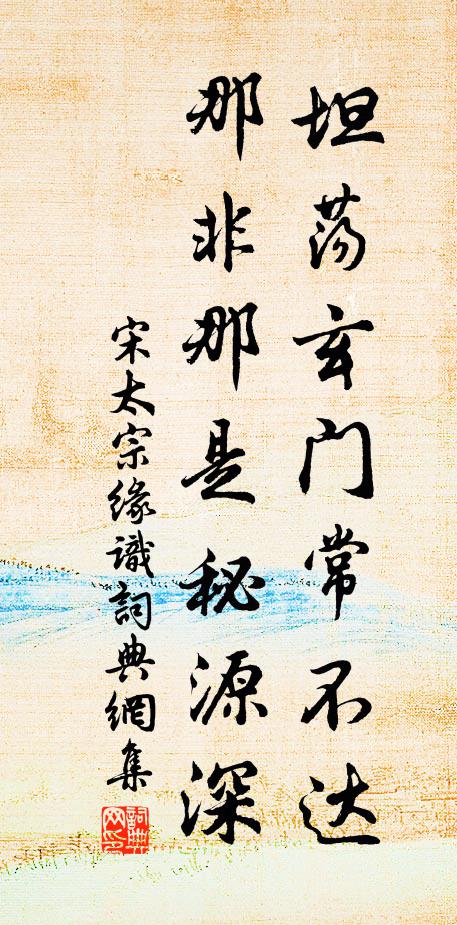 坦荡玄门常不达
那非那是秘源深
宋太宗缘識詞典網集
詞典网印